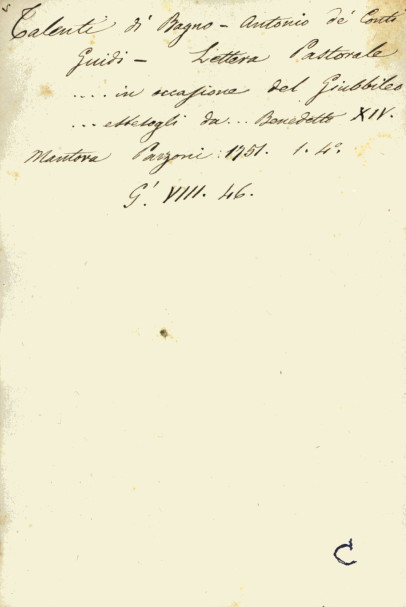 Talenti di Bagno - Antonio de' Conti
Guidi - Lettera Pastorale
.... in occasione del Giubbileo
... estesogli da ... Benedetto XIV.
Mantova Pazzoni: 1751. 1. 4º.
G! VIII. 46.
C